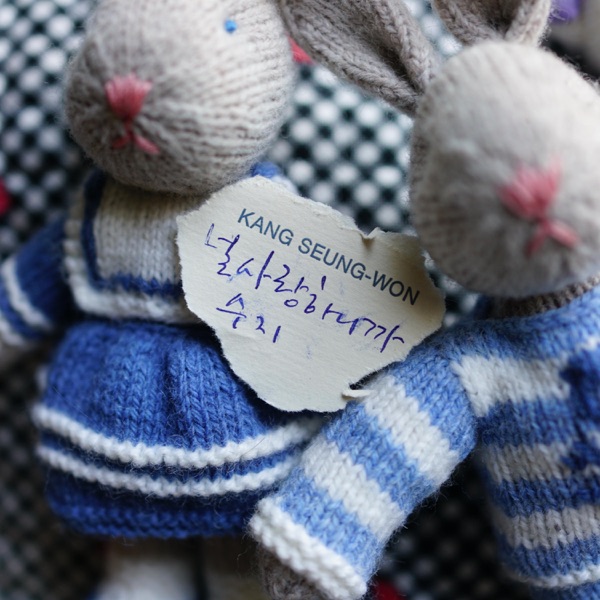 KANG SEUNG-WON
널 사랑하니까
수지